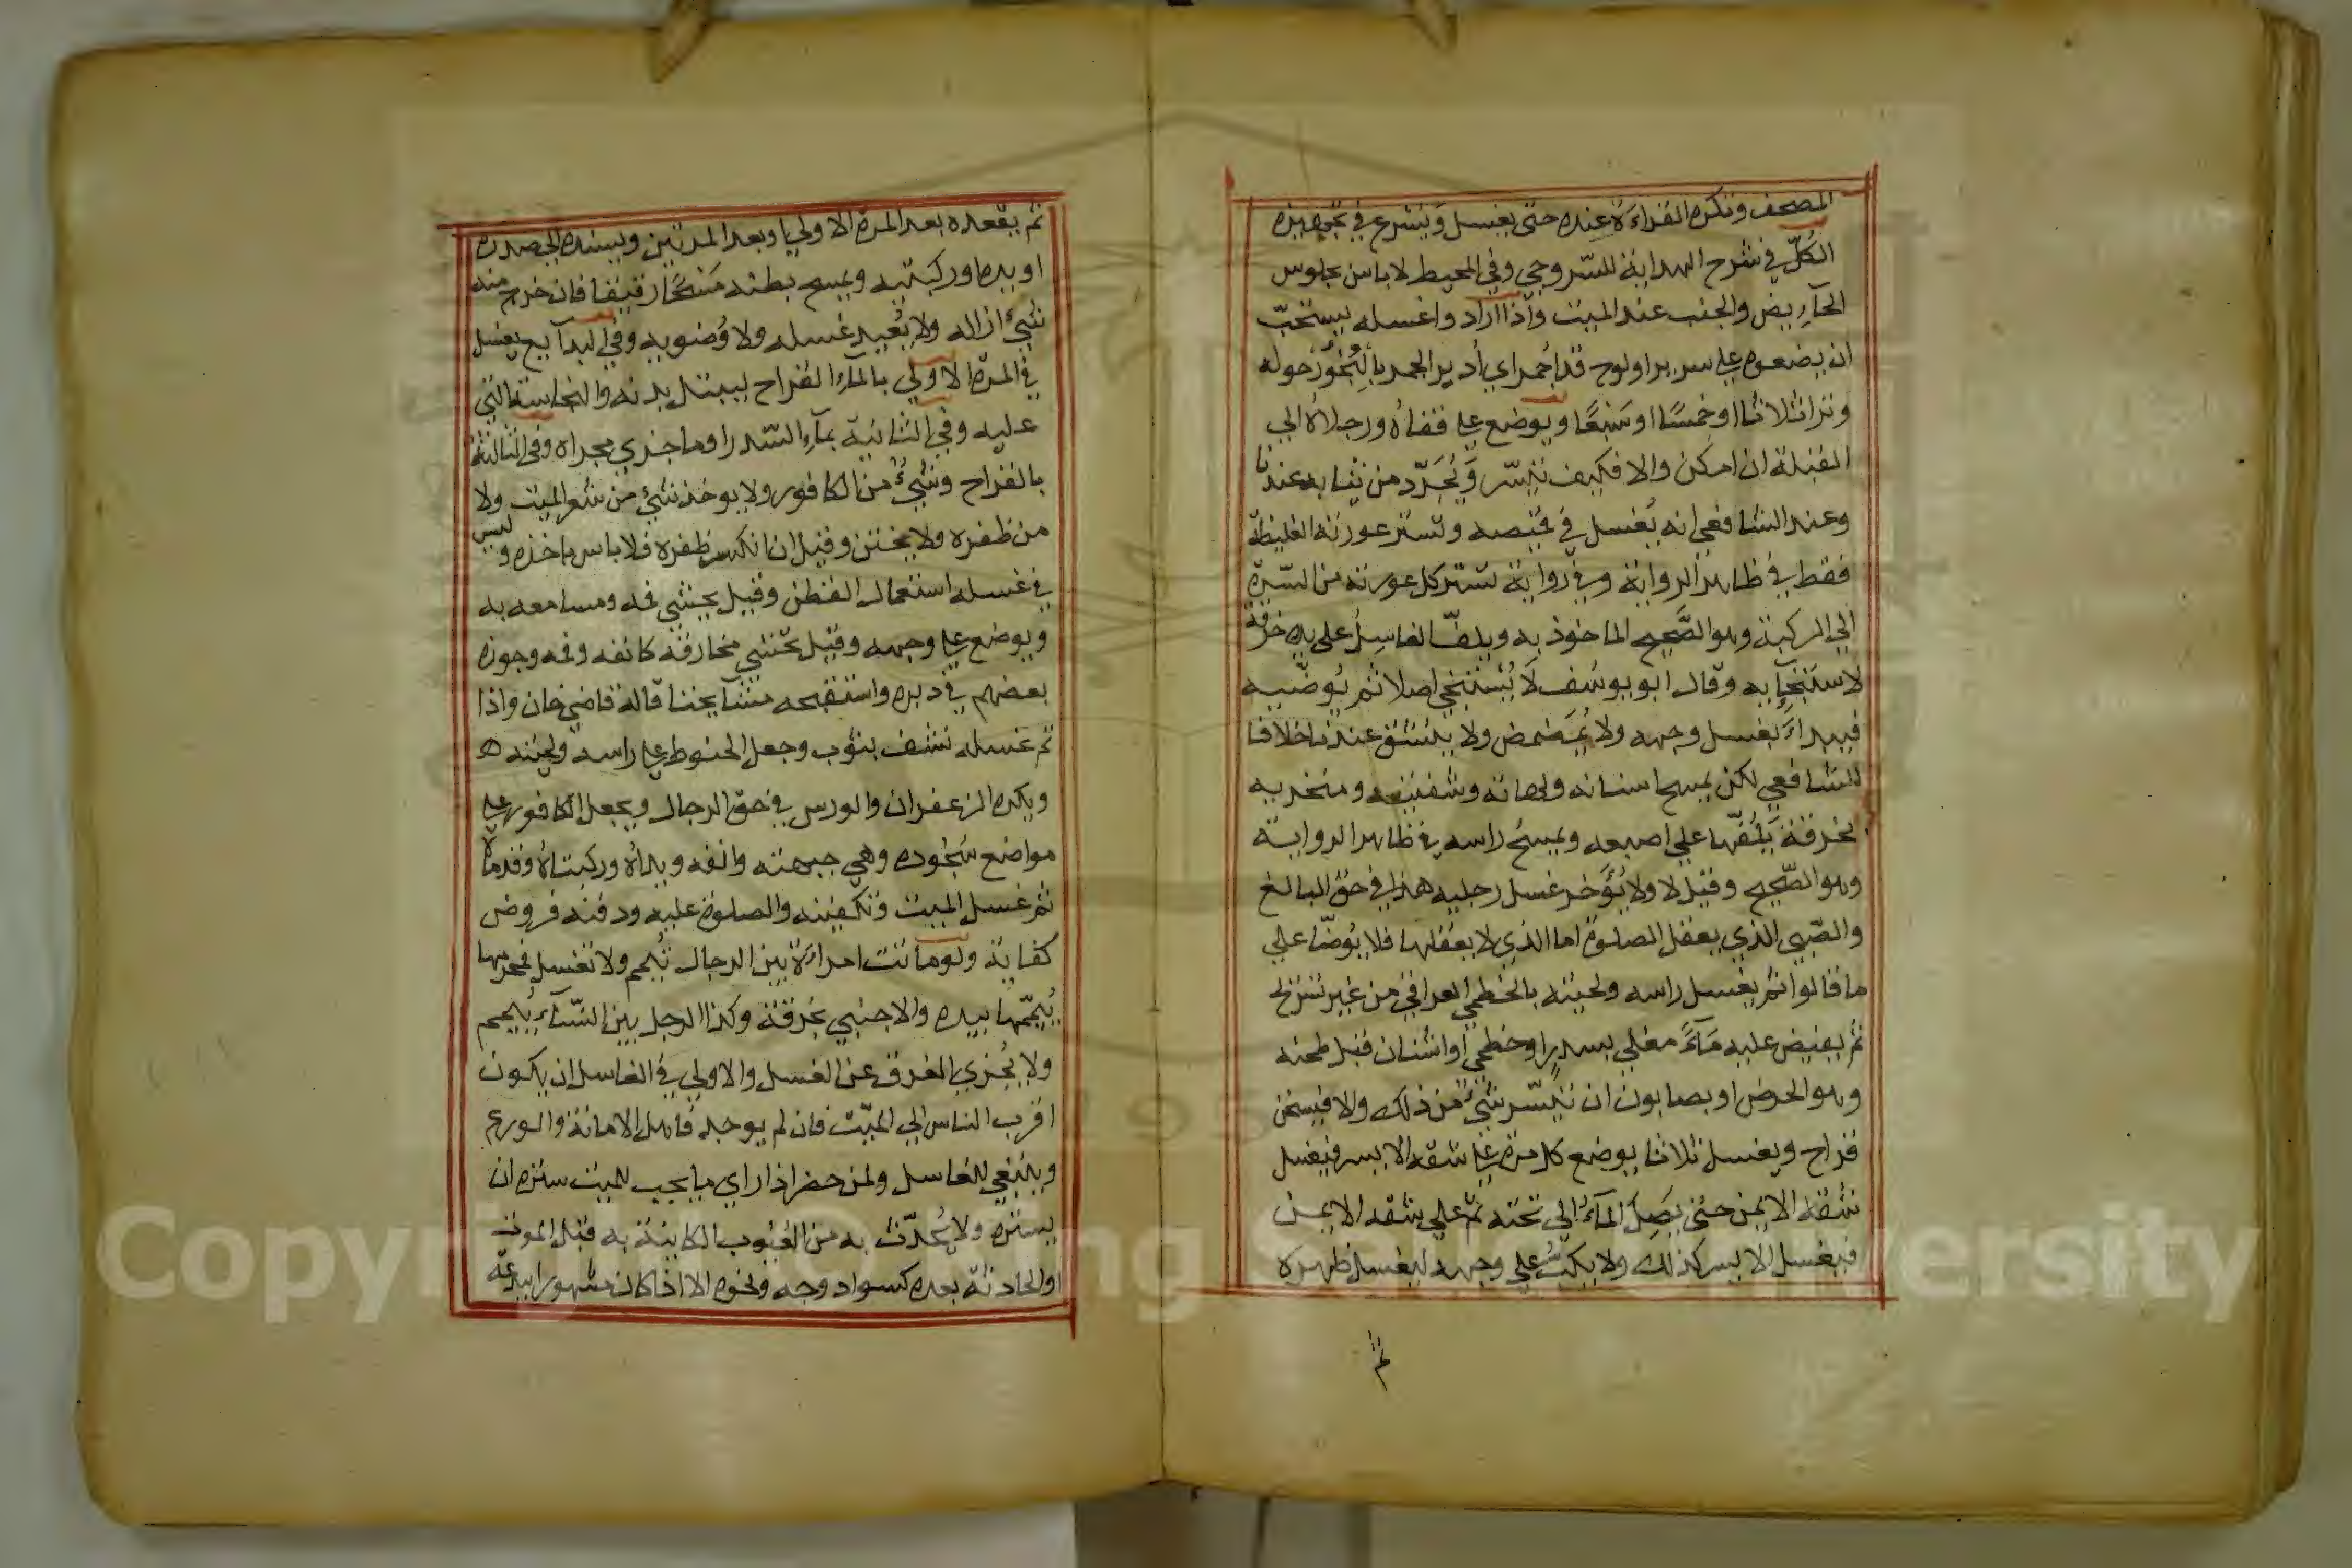 المصحف وتكره القراءة عنده حتى يغسل ويشرع في تجهيزه
الكل في شرح الهداية للسروجي وفي المحيط لا باس بجلوس
الحايض والجنب عند الميت واذا ارادوا غسله يستحب
ان يضعوه على سرير او لوح قد اجمر اي ادير المجمر بالبخور حوله
وترا ثلاثا او خمسا او سبعا ويوضع على قفاه ورجلاه الى
القبلة ان امكن والا فكيف تيسر ويجرد من ثيابه عندنا
وعند الشافعي انه يغسل في قميصه وتستر عورته الغليظة
فقط في ظاهر الرواية وفي رواية تستر كل عورته من السرة
الي الركبة وهو الصحيح الماخوذ به ويلف الغاسل على يده خرقة
لاستنجايه وقال ابو يوسف لا يستنجي اصلا ثم يوضيه
فيبداء بغسل وجهه ولا يمضمض ولا يستنشق عندنا خلافا
للشافعي لكن يمسح اسنانه ولهاته وشفتيه ومنخريه
بخرقة يلفها علي اصبعه ويمسح راسه في ظاهر الرواية
وهو الصحيح وقيل لا ولا يؤخر غسل رجليه هذا في حق البالغ
والصبي الذي يعقل الصلوة اما الذي لا يعقلها فلا يوضا علي
ما قالوا ثم يغسل راسه ولحيته بالخطمي العراقي من غير تسريح
ثم يفيض عليه ماء مغلي بسدر او خطمي او اشنان قبل طحنه
وهو الحرض او بصابون ان تيسر شيء من ذلك والا فيسخن
قراح ويغسل ثلاثا يوضع كل مرة على شقه الايسر فيغسل
شقه الايمن حتى يصل الماء الي تحته ثم علي شقه الايمن
فيغسل الايسر كذلك ولا يكب علي وجهه ليغسل ظهره
ثم
ثم يقعده بعد المرة الاولي او بعد المرتين ويسنده الى صدره
او يده او ركبتيه ويمسح بطنه مسحا رقيقا فان خرج منه
شيء ازاله ولا يعيد غسله ولا وضويه وفي البدايع يغسل
في المرة الاولي بالماء القراح ليبتل بدنه والنجاسة التي
عليه وفي الثانية بماء السدر او ما جري مجراه وفي الثالثة
بالقراح وشيء من الكافور ولا يوخذ شيء من شعر الميت ولا
من ظفره ولا يختن وقيل ان انكسر ظفره فلا باس باخذه وليس
في غسله استعمال القطن وقيل يحشي فمه ومسامعه به
ويوضع على وجهه وقيل تحشي مخارقه كانفه وفمه وجوزه
بعضهم في دبره واستقبحه مشايخنا قاله قاضي خان واذا
تم غسله نشف بثوب وجعل الحنوط على راسه ولحيته
ويكره الزعفران والورس في حق الرجال ويجعل الكافور على
مواضع سجوده وهي جبهته وانفه ويداه وركبتاه وقدماه
ثم غسل الميت وتكفينه والصلوة عليه ودفنه فروض
كفاية ولو ماتت امراءة بين الرجال تيمم ولا تغسل فمحرمها
ييممها بيده والاجنبي بخرقة وكذا الرجل بين النساء ييمم
ولا يجزي الغرق عن الغسل والاولي في الغاسل ان يكون
اقرب الناس الي الميت فان لم يوجد فاهل الامانة والورع
وينبغي للغاسل ولمن حضر اذا راي ما يجب للميت ستره ان
يستره ولا يحدث به من العيوب الكاينة به قبل الموت
او الحادثة بعده كسواد وجه ونحوه الا اذا كان مشهورا ببدعة
Copyright © King Saud University